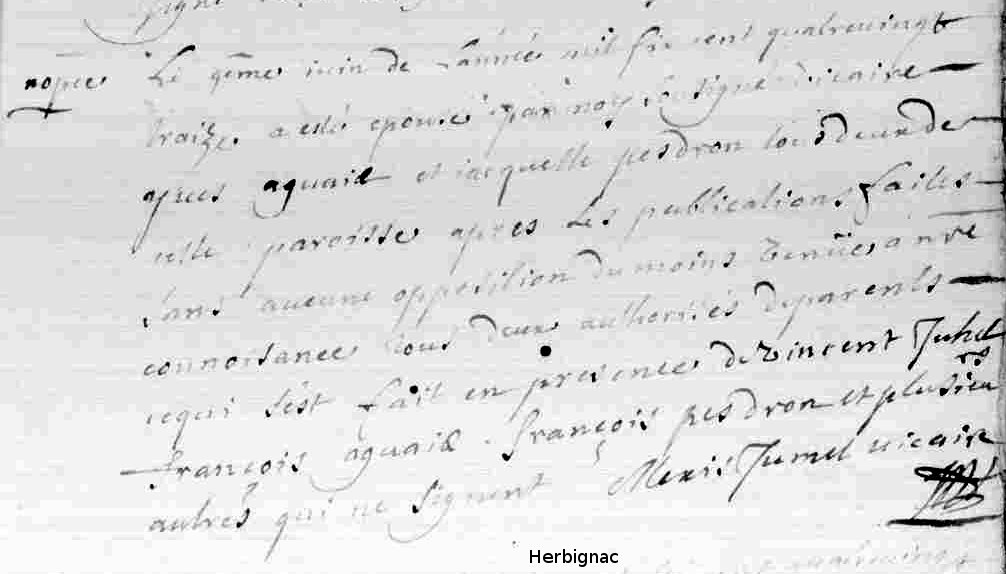 nopce Le 9eme iuin de Lannée mil six cent quatrevingt
traize a esté epousé par noy soubsigné vicaire
yves aguaise et iacquette pesdron tous deux de
cette paroisse apres Les publications faites
sans aucune opposition du moins venües a nre
connoisance tous deux authorisés de parents
cequi s'est fait en presence de vincent Juhel
françois aguaise françois pesdron et plusieurs
autres qui ne signent Alexis Jumel vicaire
Herbignac